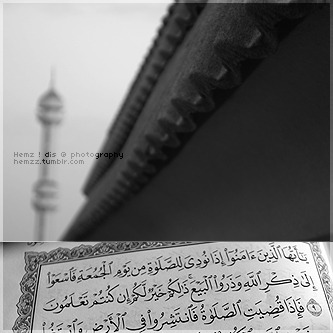 Hemz ! dis @ photography
hemzz.tumblr.com
يَٰٓأَيُّهَا ٱلَّذِينَ ءَامَنُوٓا۟ إِذَا نُودِىَ لِلصَّلَوٰةِ مِن يَوْمِ ٱلْجُمُعَةِ فَٱسْعَوْا۟
إِلَىٰ ذِكْرِ ٱللَّهِ وَذَرُوا۟ ٱلْبَيْعَ ۚ ذَٰلِكُمْ خَيْرٌ لَّكُمْ إِن كُنتُمْ تَعْلَمُونَ
٩ فَإِذَا قُضِيَتِ ٱلصَّلَوٰةُ فَٱنتَشِرُوا۟ فِى ٱلْأَرْضِ